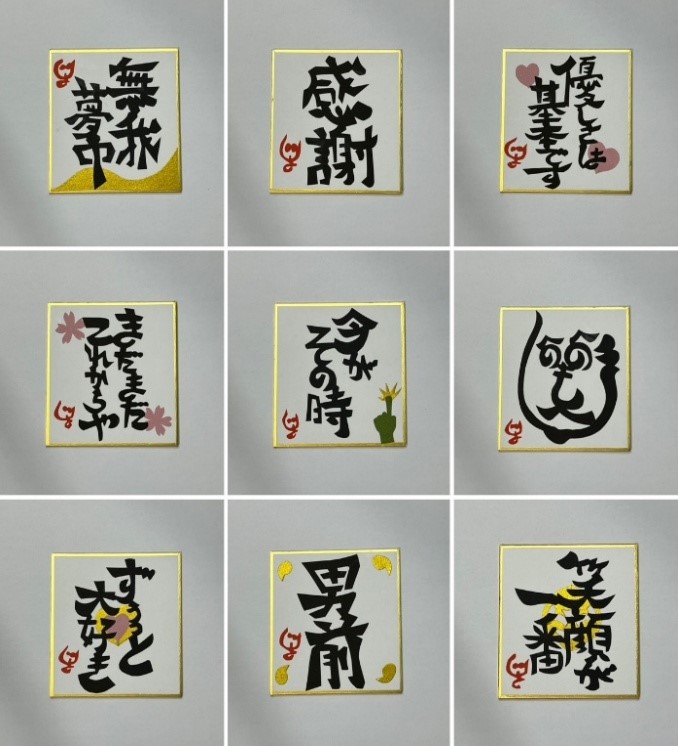 無我
夢中
感謝
優しさは
基本です
まだまだ
これからや
今が
その時
へのへのもへじ
ずっと
大好き
男前
笑顔が
一番